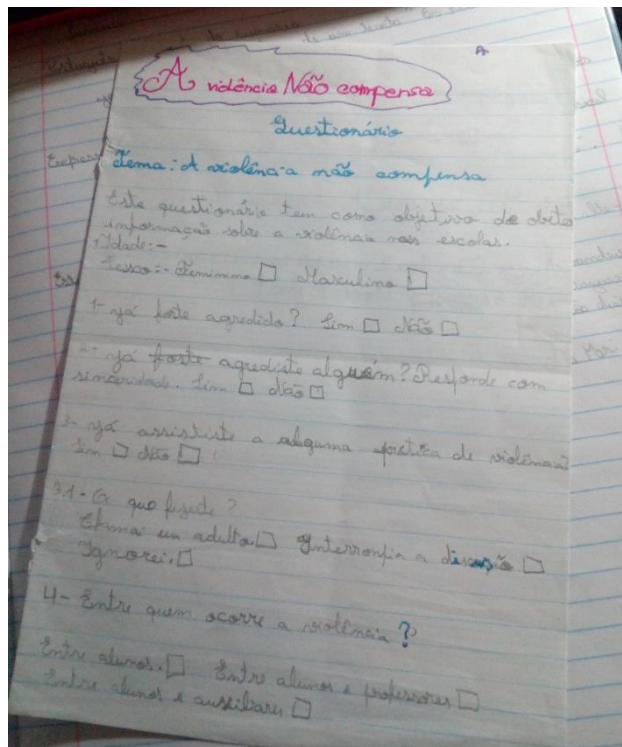 A violência Não compensa
Questionário
Tema: A violência não compensa
Este questionário tem como objetivo de obter
informação sobre a violência nas escolas.
Idade:-
Sexo:- Feminino □ Masculino □
1- Já foste agredido? Sim □ Não □
2- Já foste agrediste alguém? Responde com
sinceridade. Sim □ Não □
3- Já assististe a alguma prática de violência?
Sim □ Não □
3.1- O que fizeste?
Chamei um adulto. □ Interrompia a discussão □
Ignorei. □
4- Entre quem ocorre a violência?
Entre alunos. □ Entre alunos e professores □
Entre alunos e auxiliares □